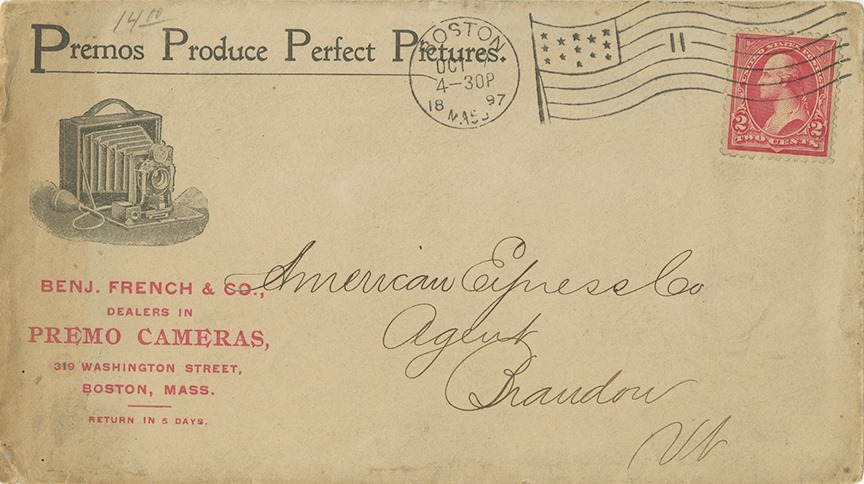 14.00
Premos Produce Perfect Pictures.
BOSTON
OCT
4-30P
18 97
MASS
11
UNITED STATES POSTAGE
2 2
TWO CENTS
BENJ. FRENCH & CO.,
DEALERS IN
PREMO CAMERAS,
319 WASHINGTON STREET,
BOSTON, MASS.
RETURN IN 5 DAYS.
American Express Co
Agent
Brandon
Vt